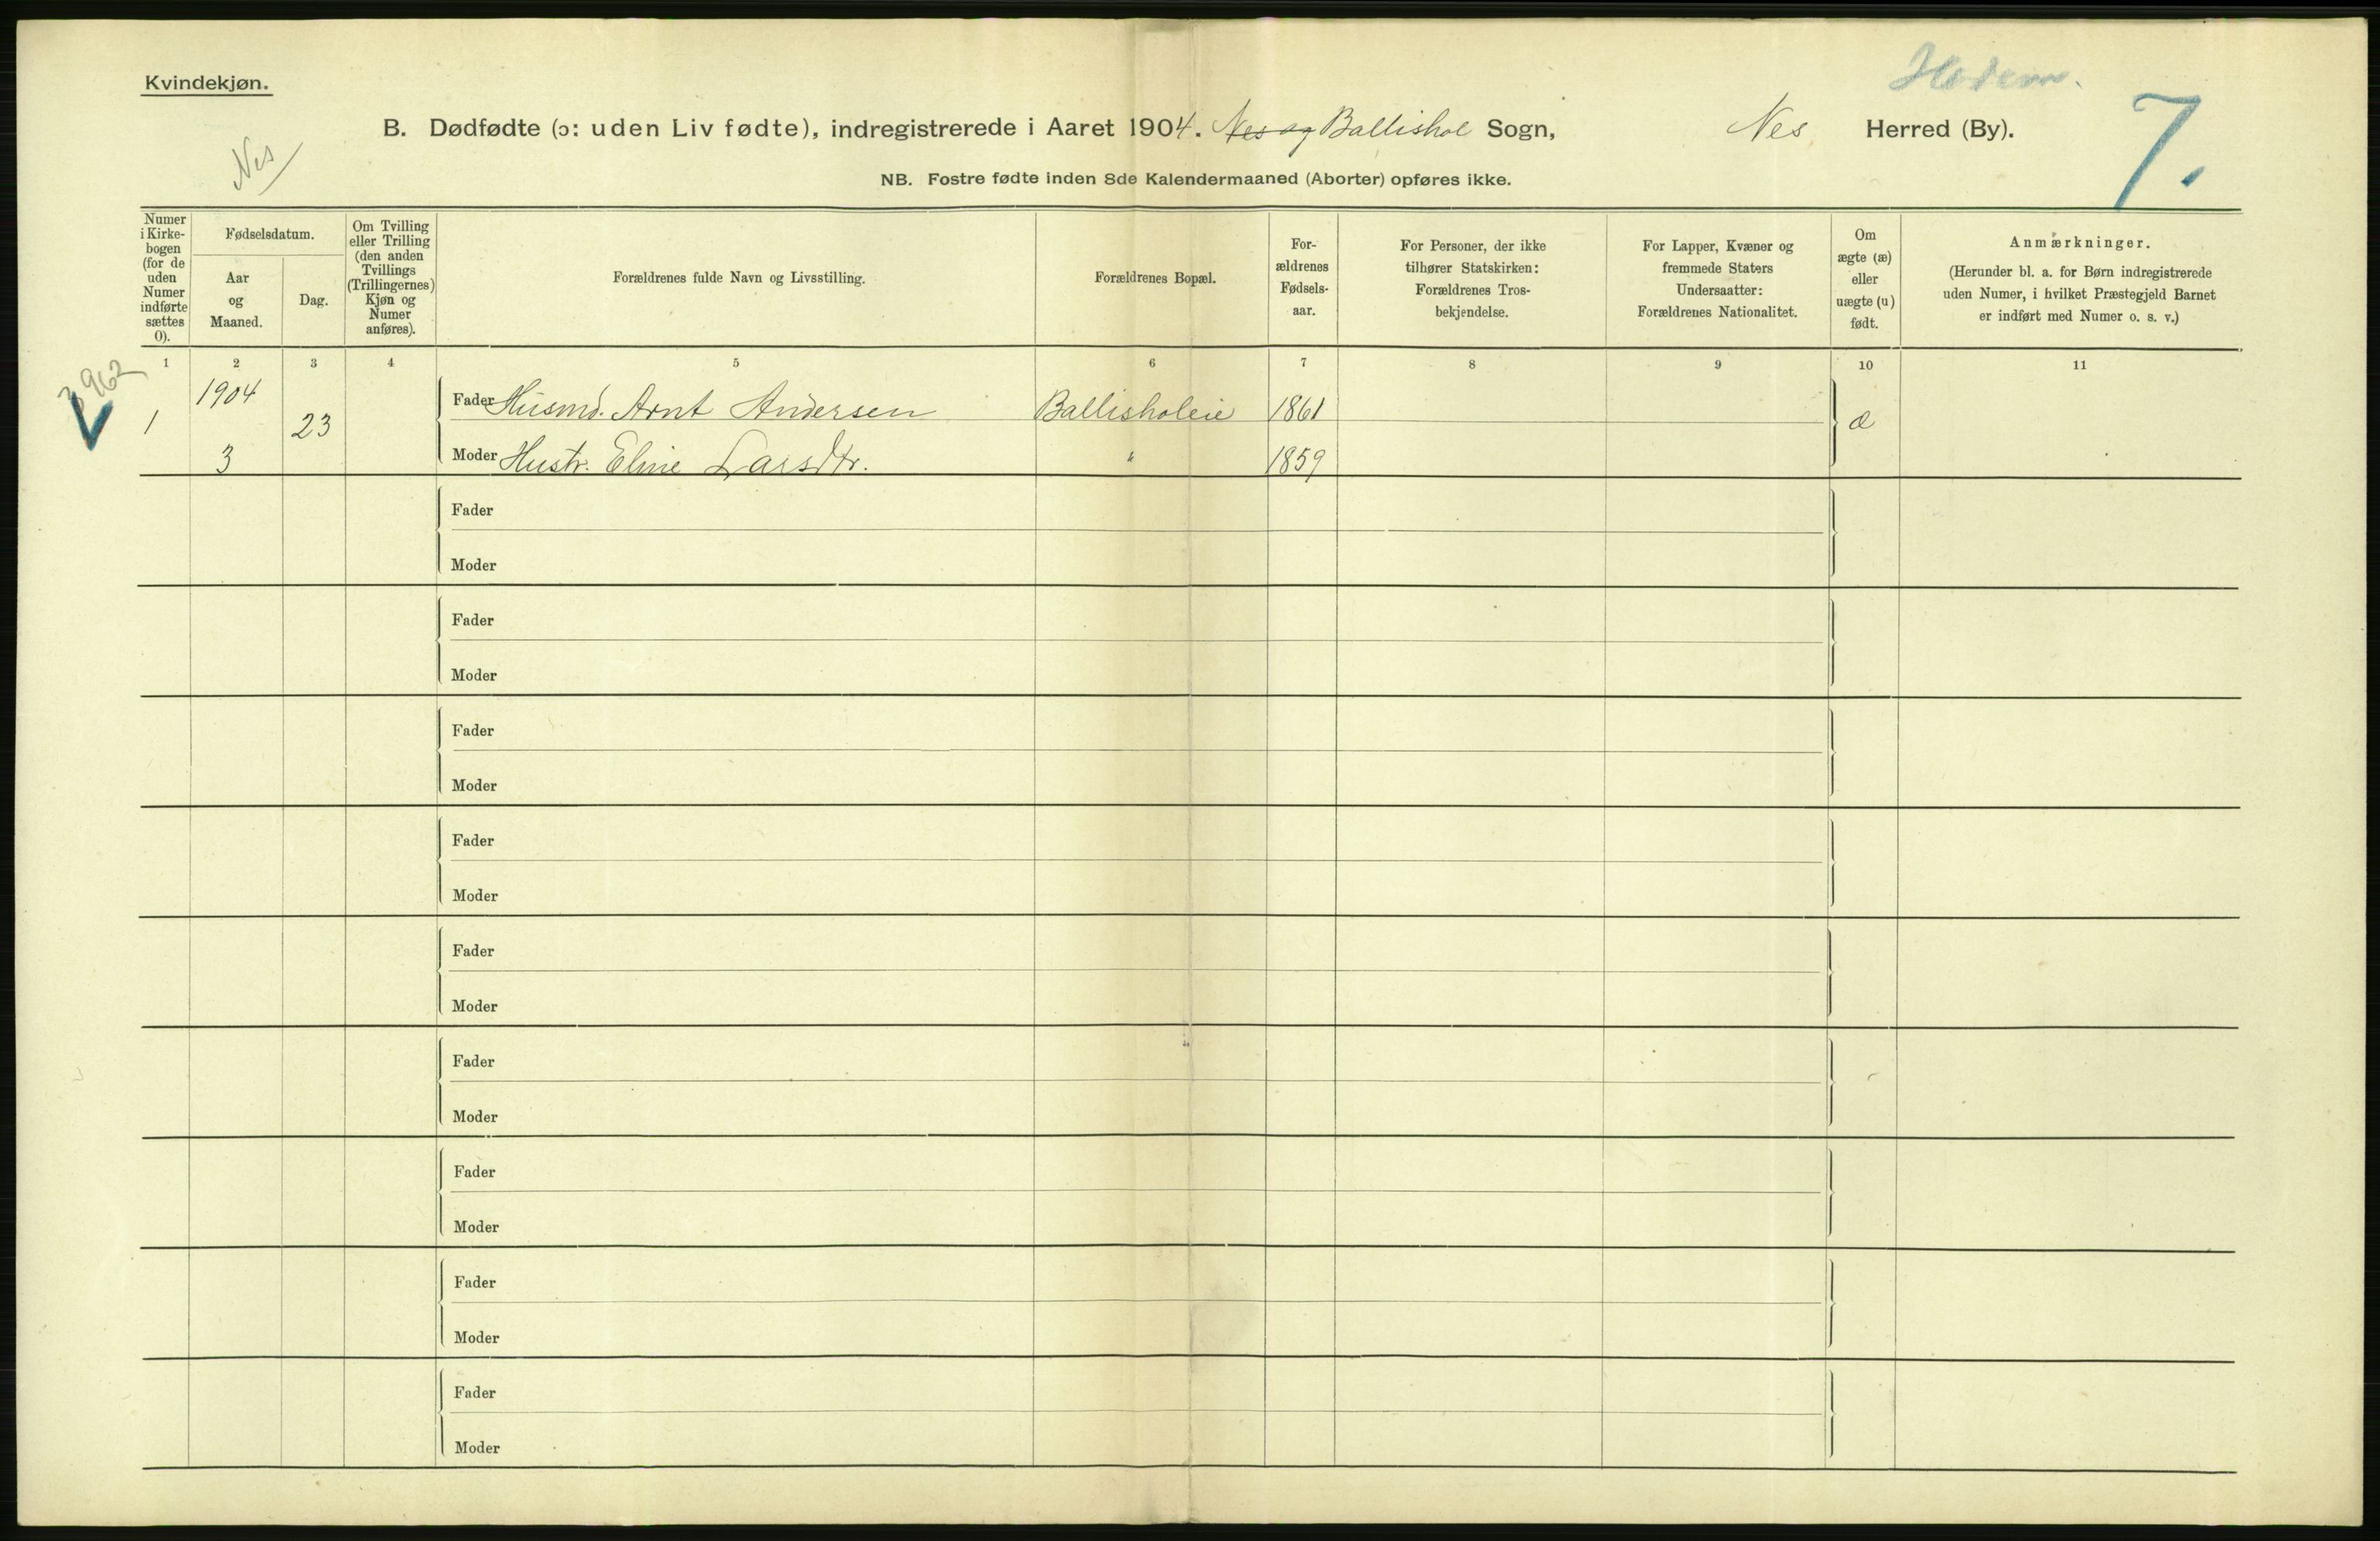 Kvindekjøn.
Hedem.
7.
B. Dødfødte (ɔ: uden Liv fødte), indregistrerede i Aaret 1904. Nes og Ballishol Sogn, Nes Herred (By).
Nes
NB. Fostre fødte inden 8de Kalendermaaned (Aborter) opføres ikke.
Numer
i Kirke-
bogen
(for de
uden
Numer
indførte
sættes
0).
Fødselsdatum.
Aar
og
Maaned.
Dag.
Om Tvilling
eller Trilling
(den anden
Tvillings
(Trillingernes)
Kjøn og
Numer
anføres).
Forældrenes fulde Navn og Livsstilling.
Forældrenes Bopæl.
For-
ældrenes
Fødsels-
aar.
For Personer, der ikke
tilhører Statskirken:
Forældrenes Tros-
bekjendelse.
For Lapper, Kvæner og
fremmede Staters
Undersaatter:
Forældrenes Nationalitet.
Om
ægte (æ)
eller
uægte (u)
født.
Anmærkninger.
(Herunder bl. a. for Børn indregistrerede
uden Numer, i hvilket Præstegjeld Barnet
er indført med Numer o. s. v.)
1 2 3 4 5 6 7 8 9 10 11
3962
1904
Fader Husmd. Arnt Andersen Ballisholeie 1861
1 23 æ
3 Moder Hustr. Eline Larsdtr. " 1859
Fader
Moder
Fader
Moder
Fader
Moder
Fader
Moder
Fader
Moder
Fader
Moder
Fader
Moder
Fader
Moder
Fader
Moder